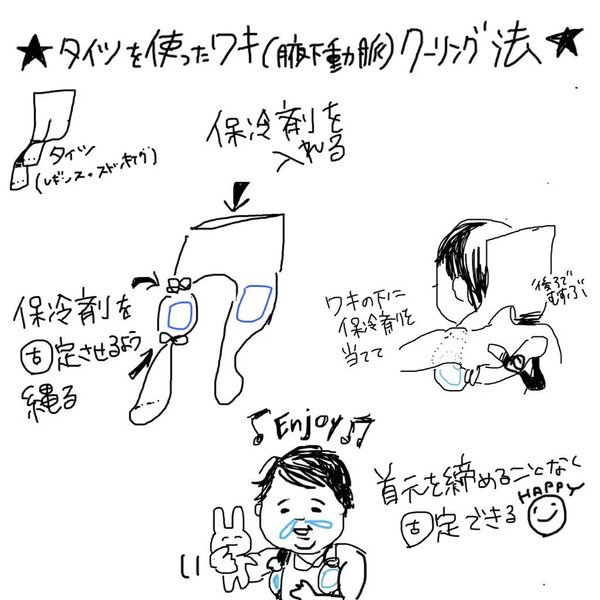 ★タイツを使ったワキ(腋下動脈)クーリング法★
保冷剤を
入れる
タイツ
(レギンス・ストッキング)
保冷剤を
固定させるよう
縄る
ワキの下に
保冷剤を
当てて
後ろで
むすぶ
♪Enjoy♪♫
首元を締めることなく
固定できる
HAPPY